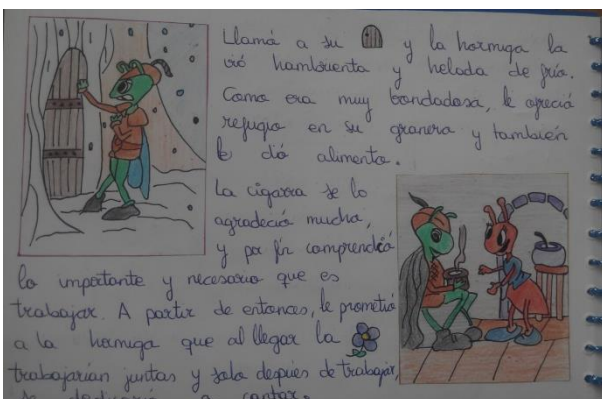 Llamó a su y la hormiga la
vió hambrienta y helada de frío.
Como era muy bondadosa, le ofreció
refugio en su granero y también
le dió alimento.
La cigarra se lo
agradeció mucho,
y por fin comprendió
lo importante y necesario que es
trabajar. A partir de entonces, le prometió
a la hormiga que al llegar la
trabajarían juntas y solo depués de trabajar,
se dedicaría a cantar.